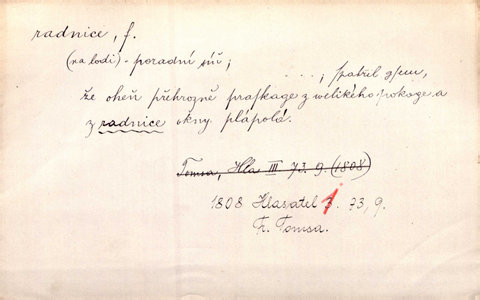 radnice, f.
(na lodi) - poradní síň;
...., spatřil gsem,
že oheň přehrozně praskage z welikého pokoge a
z radnice okny plápolá.
Tomsa, Hla III. 73. 9. (1808)
1808 Hlasatel 1. 73, 9.
Fr. Tomsa.